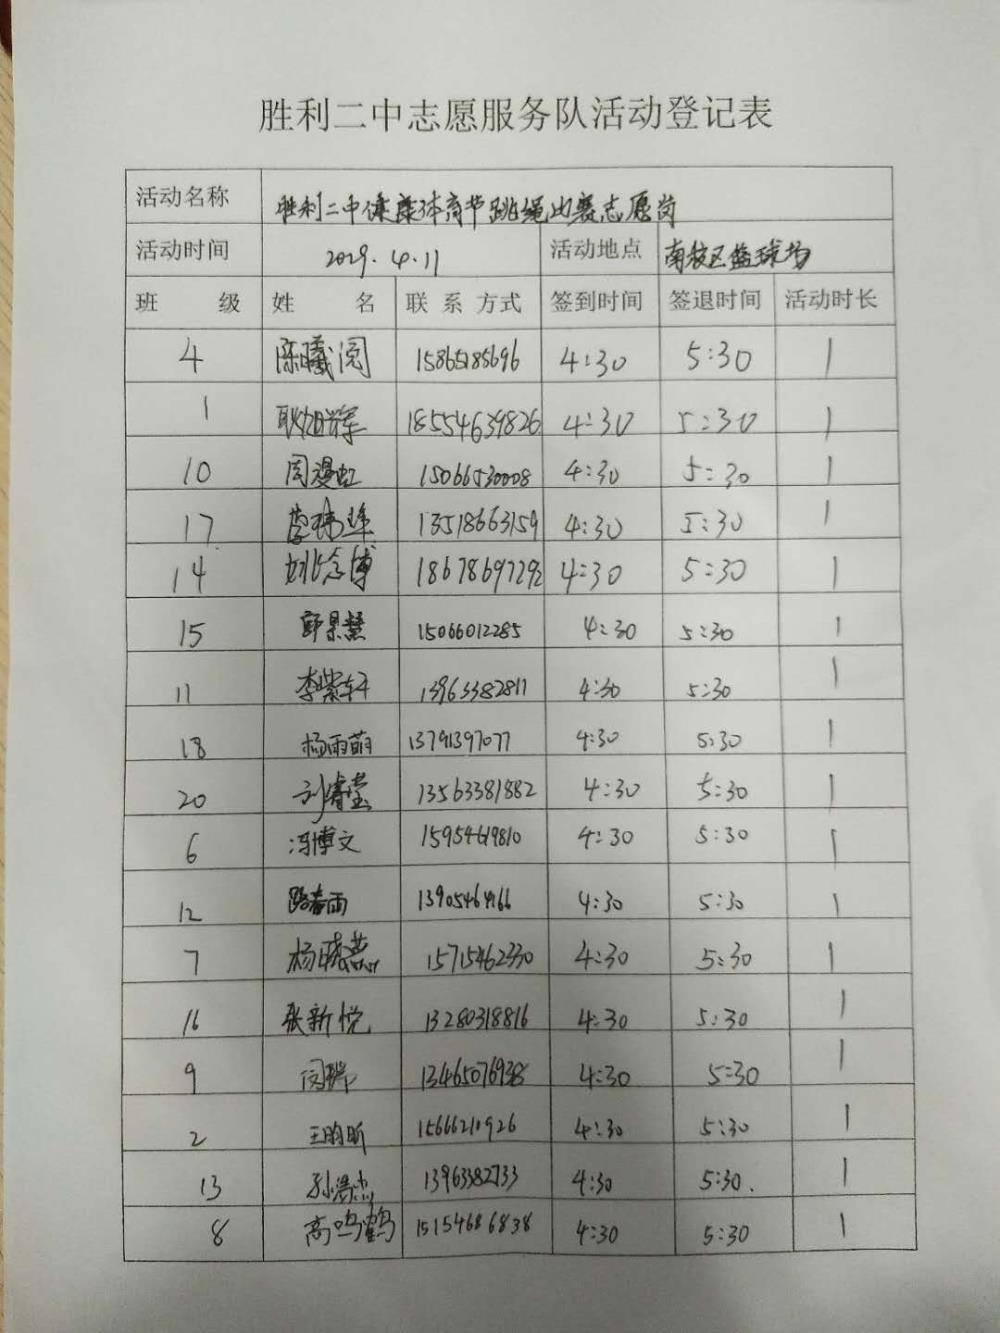 胜利二中志愿服务队活动登记表
活动名称 胜利二中健康体育节跳绳比赛志愿岗
活动时间 2029.4.11 活动地点 南校区篮球场
班 级 姓 名 联 系 方式 签到时间 签退时间 活动时长
4 陈曦阅 15865185696 4:30 5:30 1
1 耿旭辉 18554639826 4:30 5:30 1
10 周漫虹 15066530008 4:30 5:30 1
17 13518663159 4:30 5:30 1
14 18678697292 4:30 5:30 1
15 郭景慧 15066012285 4:30 5:30 1
11 李紫轩 13963382811 4:30 5:30 1
18 杨雨萌 13791397077 4:30 5:30 1
20 刘睿莹 13563381882 4:30 5:30 1
6 冯博文 15954619810 4:30 5:30 1
12 路春雨 4:30 5:30 1
7 杨晓燕 15715462330 4:30 5:30 1
16 张新悦 13280318816 4:30 5:30 1
9 闵瑞 13465076938 4:30 5:30 1
2 王昀昕 15666210926 4:30 5:30 1
13 13963382733 4:30 5:30. 1
8 高鸣鹤 15154686838 4:30 5:30 1